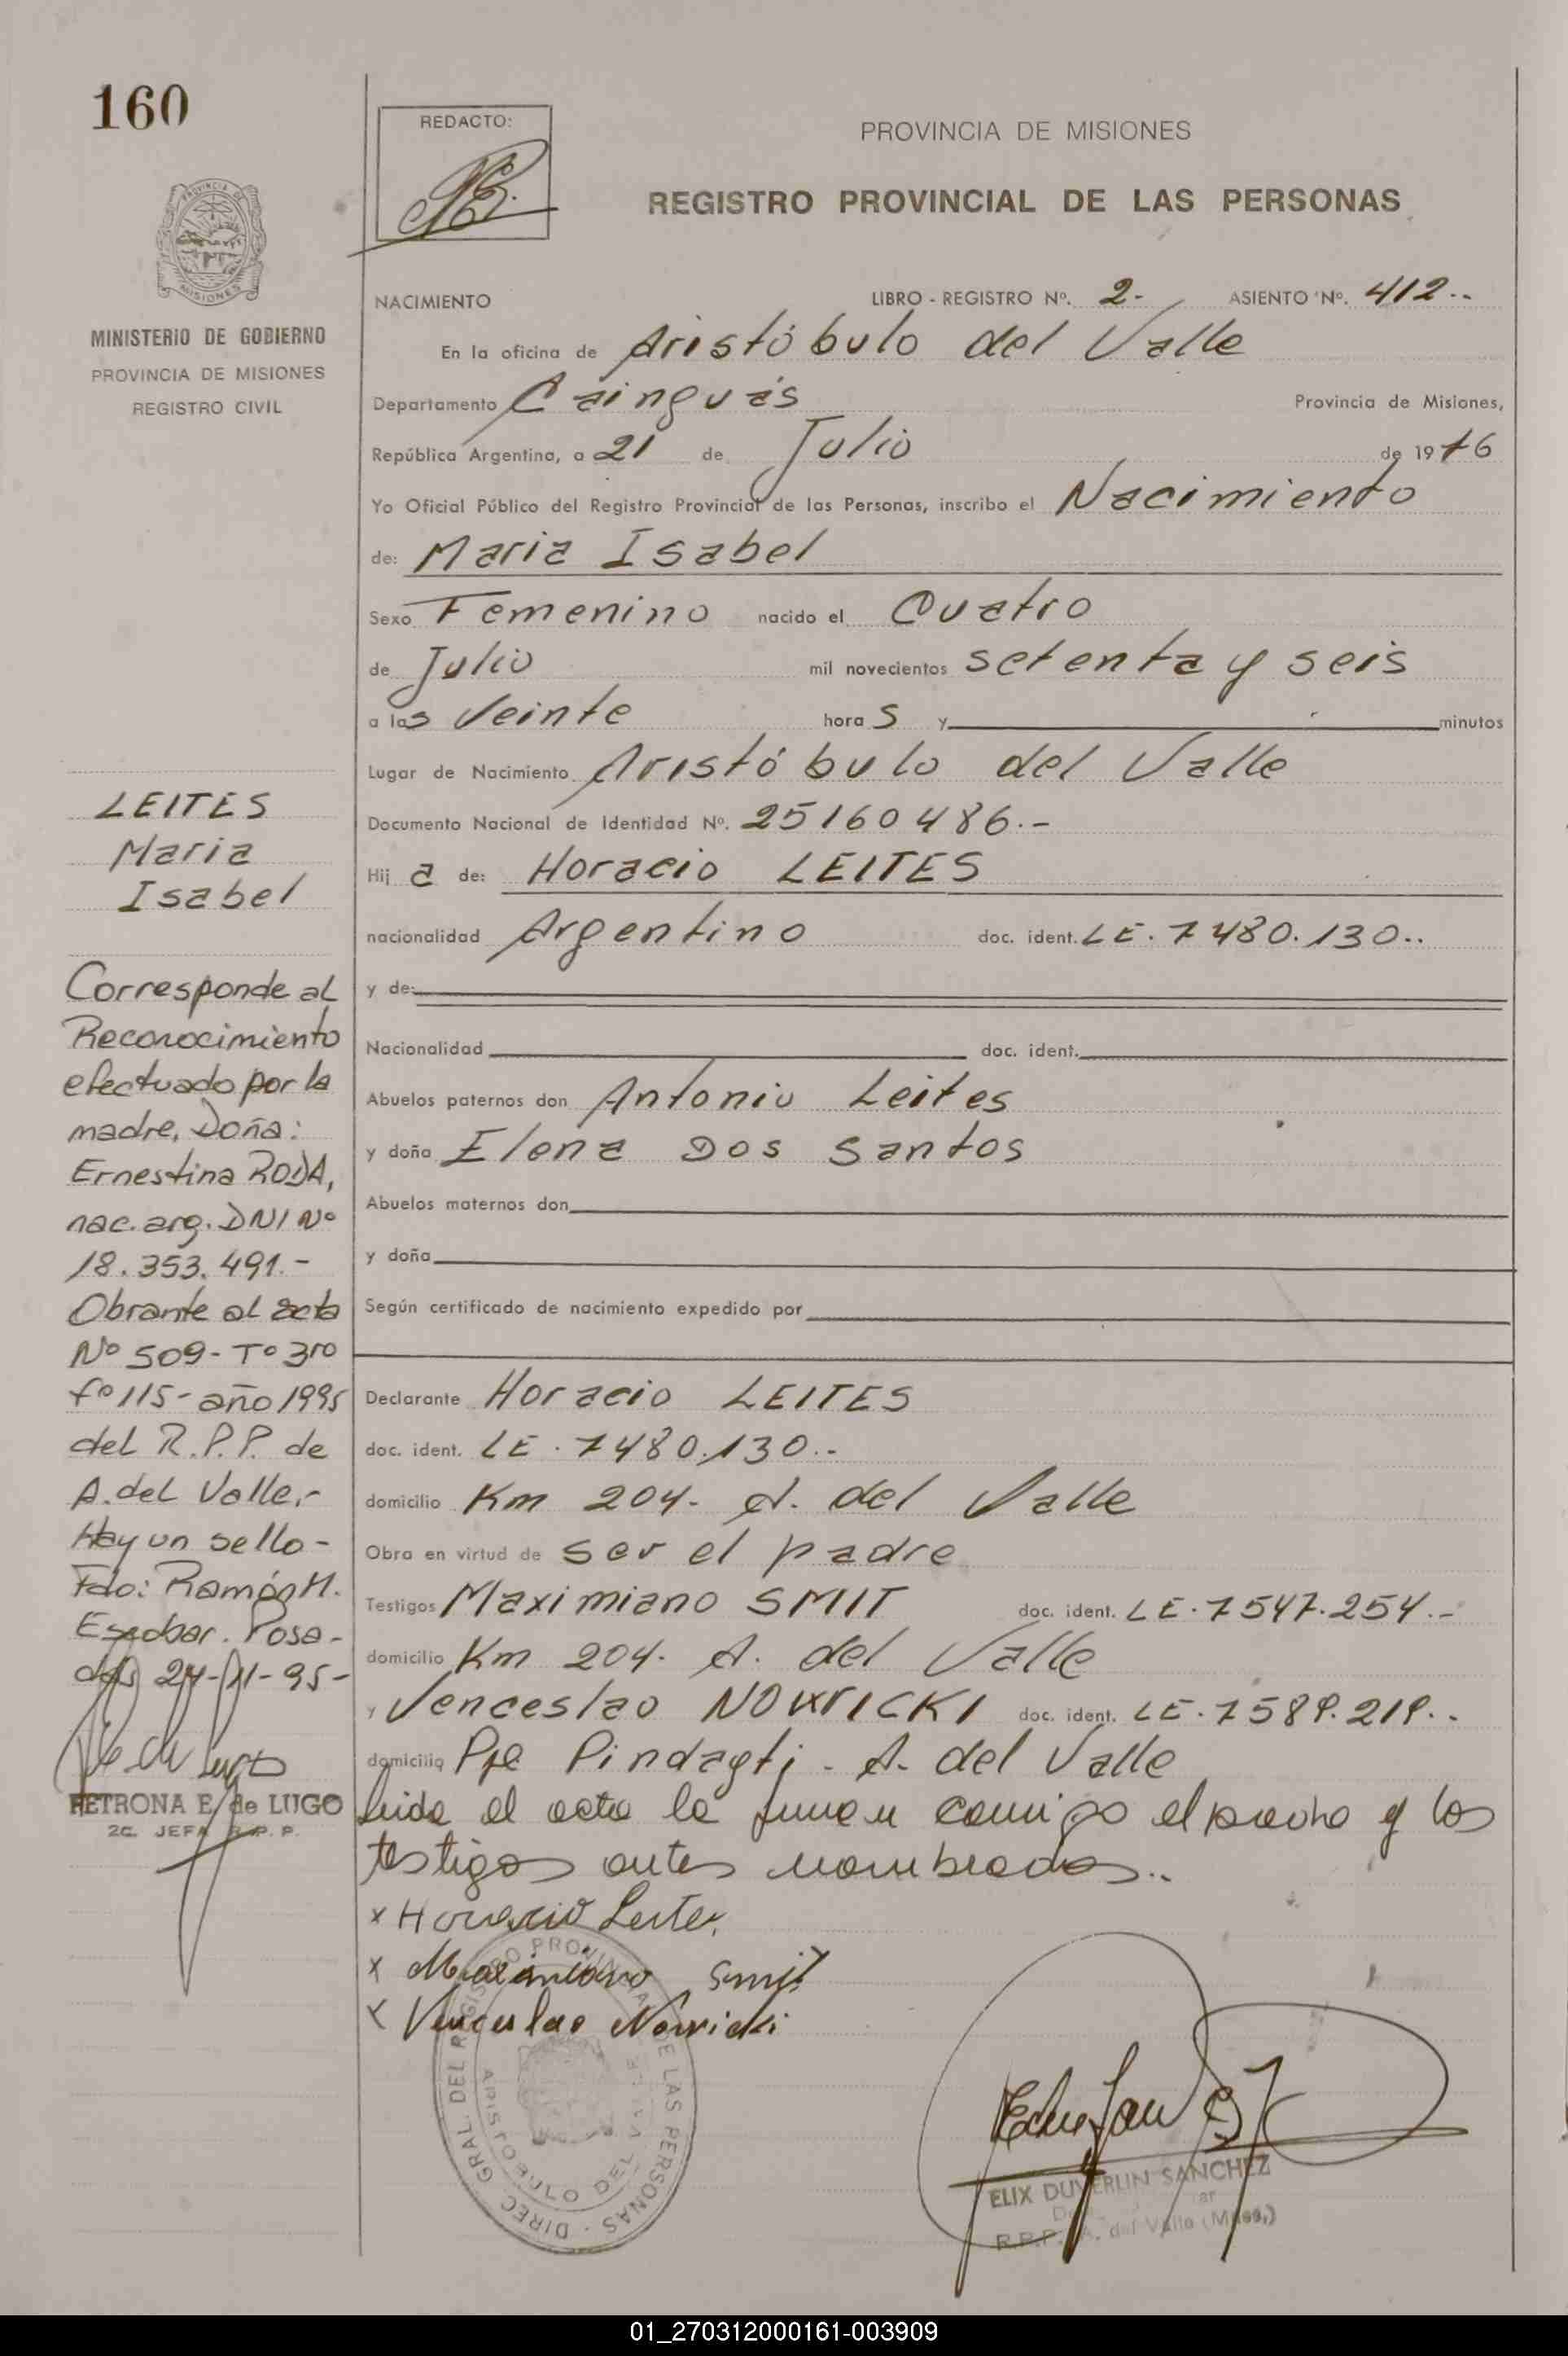 160
REDACTO:
PROVINCIA DE MISIONES
REGISTRO PROVINCIAL DE LAS PERSONAS
MISIONES
MINISTERIO DE GOBIERNO
PROVINCIA DE MISIONES
REGISTRO CIVIL
NACIMIENTO LIBRO - REGISTRO Nº. 2.- ASIENTO Nº. 412.-
En la oficina de Aristóbulo del Valle
Departamento Cainguás Provincia de Misiones,
República Argentina, a 21 de Julio de 1976
Yo Oficial Público del Registro Provincial de las Personas, inscribo el Nacimiento
de: Maria Isabel
Sexo Femenino nacido el Cuatro
de Julio mil novecientos setenta y seis
a las Veinte horas y minutos
Lugar de Nacimiento Aristóbulo del Valle
Documento Nacional de Identidad Nº. 25160486.-
Hija de: Horacio LEITES
nacionalidad Argentino doc. ident. LE. 7480.130..
y de:
Nacionalidad doc. ident.
Abuelos paternos don Antonio Leites
y doña Elena Dos Santos
Abuelos maternos don
y doña
Según certificado de nacimiento expedido por
Declarante Horacio LEITES
doc. ident. LE. 7480.130.-
domicilio Km 204. A. del Valle
Obra en virtud de ser el padre
Testigos Maximiano SMIT doc. ident. LE. 7547.254.-
domicilio Km 204. A. del Valle
y Venceslao NOWICKI doc. ident. LE. 7589.219..
domicilio Pje Pindayti - A. del Valle
Leida el acta la firman conmigo el padre y los
testigos antes nombrados..
x Horacio Leites
x Maximiano Smit
x Venceslao Nowicki
LEITES
Maria
Isabel
Corresponde al
Reconocimiento
efectuado por la
madre, Doña:
Ernestina RODA,
nac. arg. DNI Nº
18.353.491.-
Obrante al acta
Nº 509- Tº 3ro
fº 115- año 1995
del R.P.P. de
A. del Valle.-
Hay un sello-
Fdo: Ramón H.
Escobar. Posa-
das 27-11-95-
PETRONA E. de LUGO
2C. JEFA R.P.P.
DIREC. GRAL. DEL REGISTRO PROVINCIAL DE LAS PERSONAS
ARISTOBULO DEL VALLE
ELIX DUVERLIN SANCHEZ
R.P.P. A. del Valle (Mnes.)
01_270312000161-003909